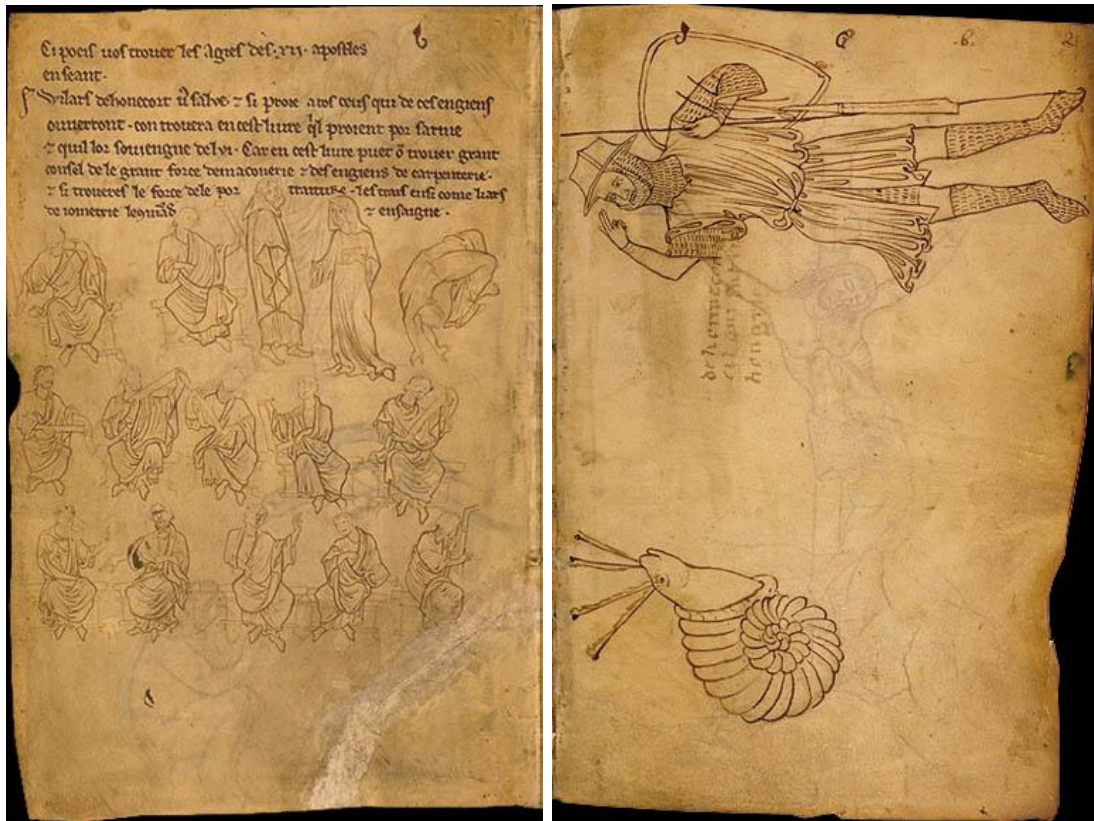 Ci poeis vos trover les agies des .xii. apostles
en seant.
Wilars dehonecort v̄ salve ⁊ si proie a tos ceus qui de ces engiens
ouverront. con trovera en cest livre q̄l proient por sarme
⁊ quil lor soviengne de lvi. Car en cest livre puet ō trover grant
consel de le grant force de maconerie ⁊ des engiens de carpenterie.
⁊ si troveres le force dele por traiture. les trais ensi come li ars
de iometrie ⁊ ensaigne.
.6. 2
de honnec
hongrie